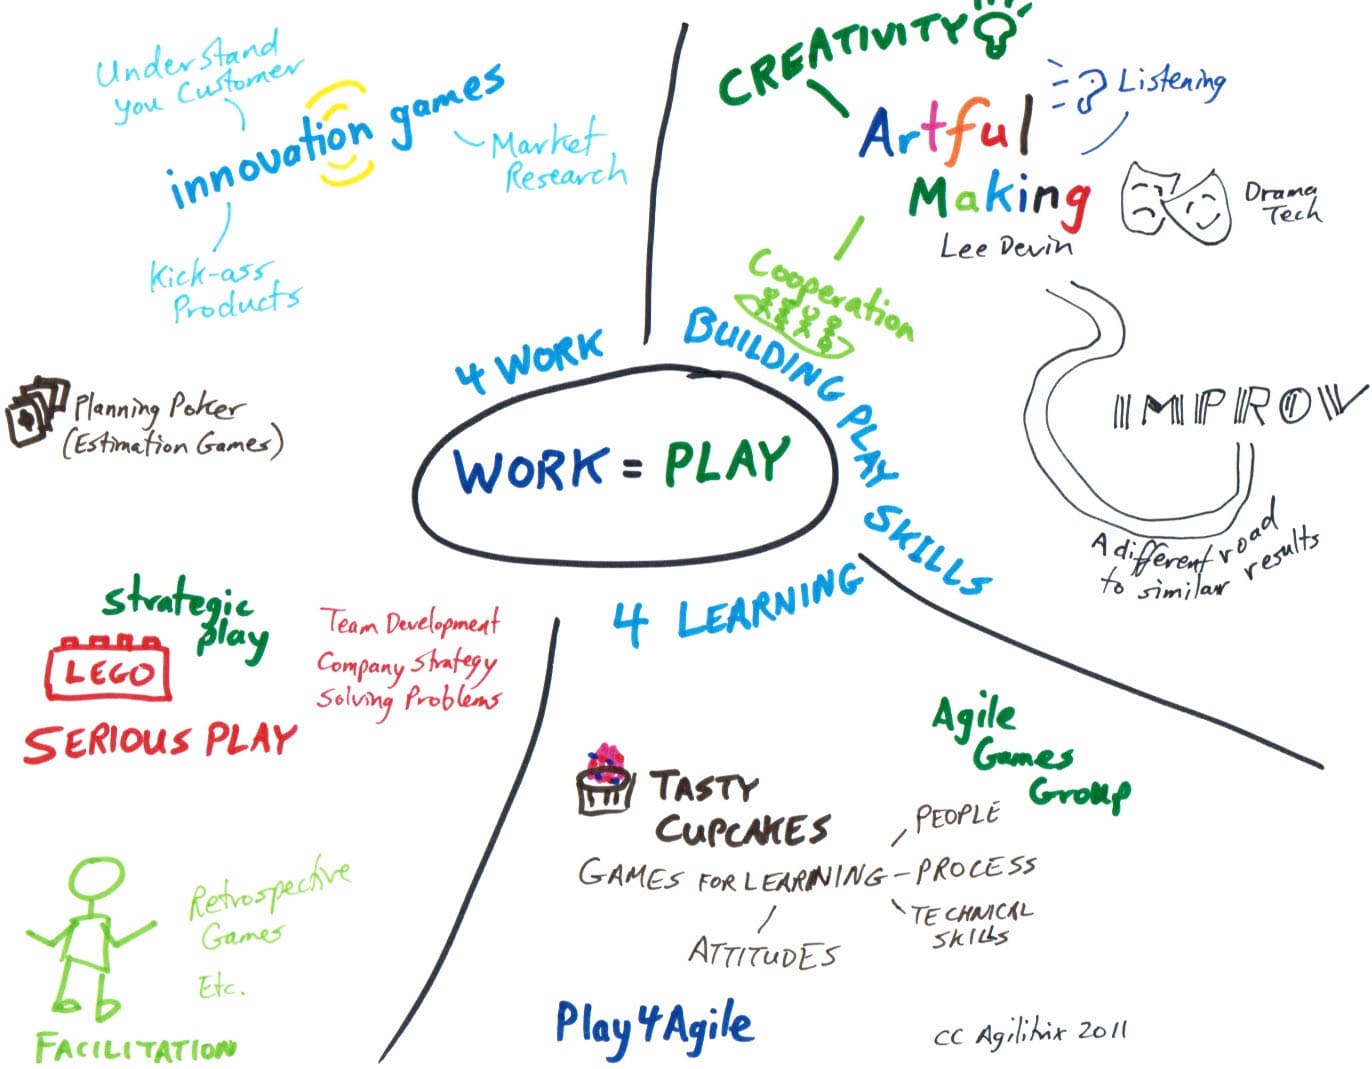 Understand
you Customer
innovation games
Market
Research
Kick-ass
Products
Planning Poker
(Estimation Games)
Strategic
play
LEGO
SERIOUS PLAY
Team Development
Company Strategy
Solving Problems
Retrospective
Games
Etc.
FACILITATION
4 WORK
WORK = PLAY
BUILDING PLAY SKILLS
4 LEARNING
CREATIVITY
Artful
Making
Lee Devin
Listening
Drama
Tech
Cooperation
IMPROV
A different road
to similar results
Agile
Games
Group
TASTY
CUPCAKES
GAMES FOR LEARNING
PEOPLE
PROCESS
TECHNICAL
SKILLS
ATTITUDES
Play4Agile
CC Agilitrix 2011